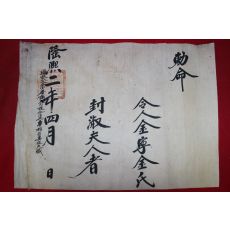 勅命
令人金寧金氏
封淑夫人者
隆熙二年四月 日